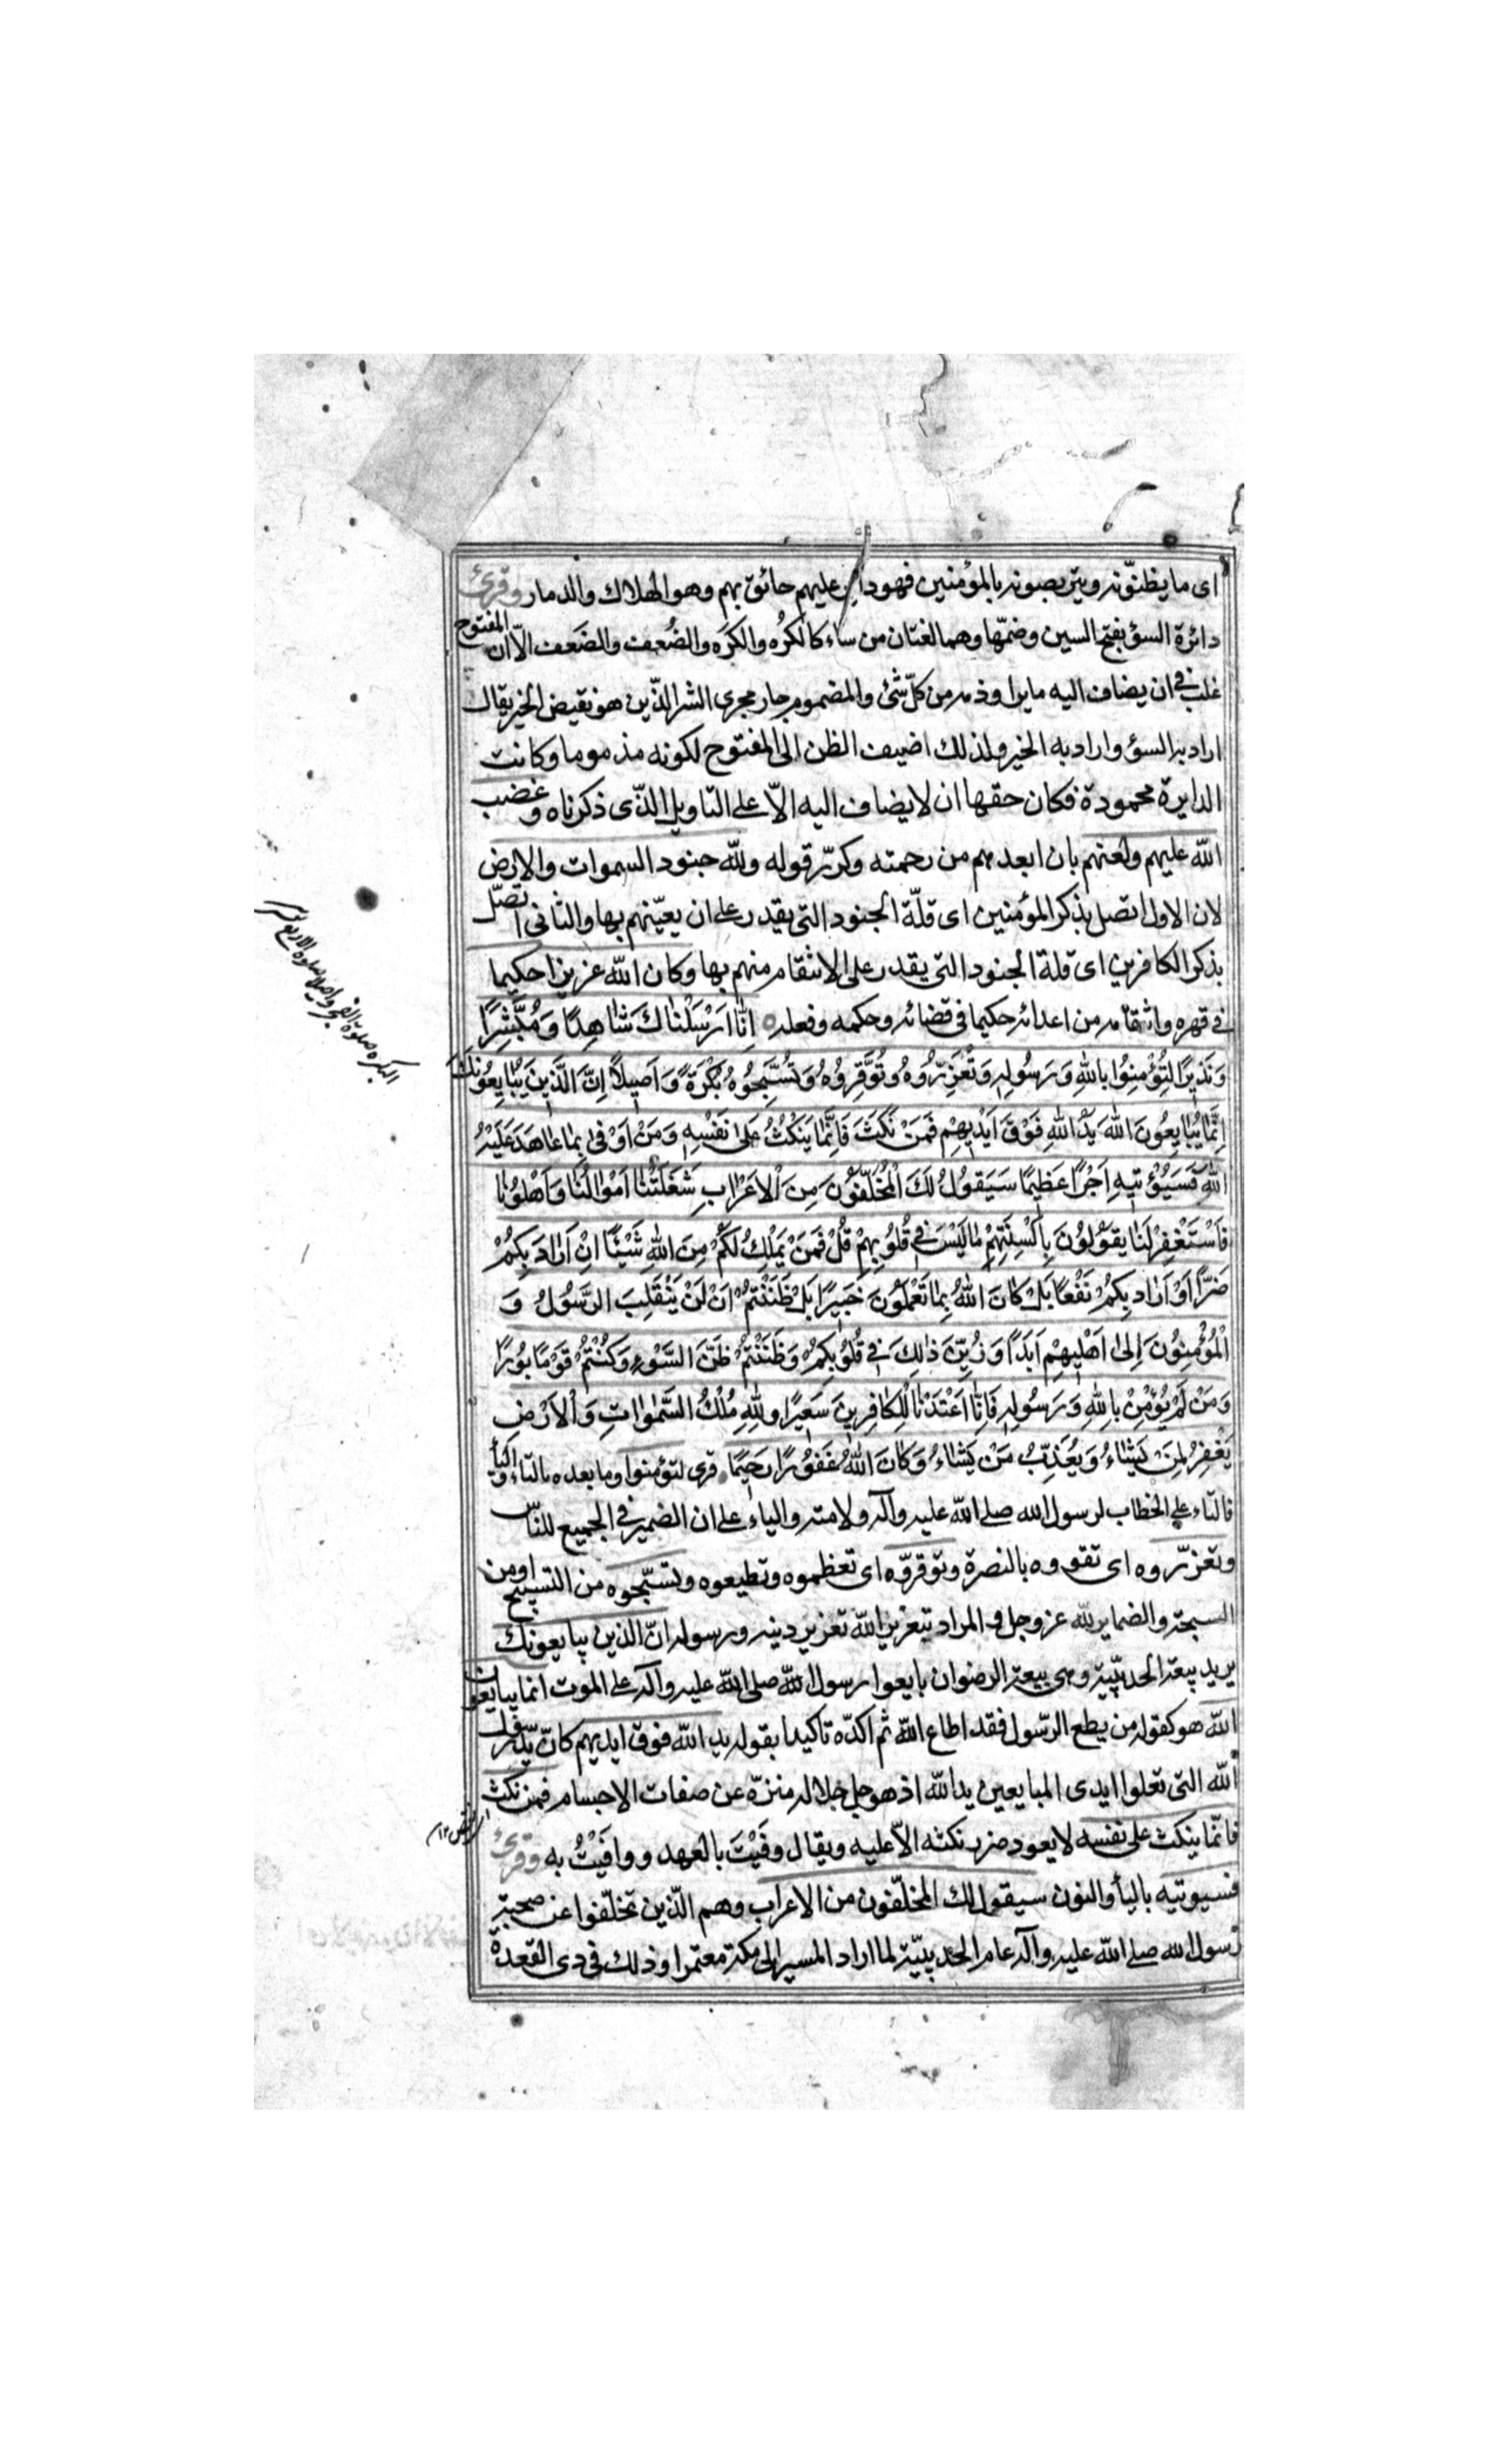 اى ما يظنّونه ويتربصونه بالمؤمنين فهو داير عليهم حائق بهم وهو الهلاك والدمار وقرئ
دائرة السؤ بفتح السين وضمّها وهما لغتان من ساء كالكُره والكَره والضُعف والضَعف الّا ان المفتوح
غلب فى ان يضاف اليه ما يراد ذمه من كلّ شئ والمضموم جار مجرى الشر الذّين هو نقيض الخير يقال
اراد به السؤ واراد به الخير ولذلك اضيف الظن الى المفتوح لكونه مذموما وكانت
الدايرة محمودة فكان حقها ان لا يضاف اليه الاّ على التاويل الذّى ذكرناه وغضب
اللّه عليهم ولعنهم بان ابعدهم من رحمته وكرّر قوله وللّه جنود السموات والارض
لان الاول اتصل بذكر المؤمنين اى قلّة الجنود التى يقدر على ان يعيّنهم بها والثانى اتصّل
بذكر الكافرين اى قلة الجنود التى يقدر على الانتقام منهم بها وكان اللّه عزيزا حكيما
فى قهره وانتقامه من اعدائه حكيما فى قضائه وحكمه وفعله اِنّٰا اَرْسَلْنٰاكَ شٰاهِدًا وَمُبَشِّرًا
وَنَذِيرًا لِتُؤْمِنُوا بِاللّٰهِ وَرَسُولِهِ وَتُعَزِّرُوهُ وَتُوَقِّرُوهُ وَتُسَبِّحُوهُ بُكْرَةً وَاَصِيلًا اِنَّ الَّذِينَ يُبٰايِعُونَكَ
اِنَّمٰا يُبٰايِعُونَ اللّٰهَ يَدُ اللّٰهِ فَوْقَ اَيْدِيهِمْ فَمَنْ نَكَثَ فَاِنَّمٰا يَنْكُثُ عَلىٰ نَفْسِهِ وَمَنْ اَوْفىٰ بِمٰا عٰاهَدَ عَلَيْهُ
اللّٰهَ فَسَيُؤْتيهِ اَجْرًا عَظِيمًا سَيَقُولُ لَكَ الْمُخَلَّفُونَ مِنَ الْاَعْرٰابِ شَغَلَتْنٰا اَمْوٰالُنٰا وَاَهْلُونٰا
فَاسْتَغْفِرْ لَنٰا يَقُولُونَ بِاَلْسِنَتِهِمْ مٰا لَيْسَ فِي قُلُوبِهِمْ قُلْ فَمَنْ يَمْلِكُ لَكُمْ مِنَ اللّٰهِ شَيْئًا اِنْ اَرٰادَ بِكُمْ
ضَرًّا اَوْ اَرٰادَ بِكُمْ نَفْعًا بَلْ كٰانَ اللّٰهُ بِمٰا تَعْمَلُونَ خَبِيرًا بَلْ ظَنَنْتُمْ اَنْ لَنْ يَنْقَلِبَ الرَّسُولُ وَ
الْمُؤْمِنُونَ اِلىٰ اَهْلِيهِمْ اَبَدًا وَزُيِّنَ ذٰلِكَ فِي قُلُوبِكُمْ وَظَنَنْتُمْ ظَنَّ السَّوْءِ وَكُنْتُمْ قَوْمًا بُورًا
وَمَنْ لَمْ يُؤْمِنْ بِاللّٰهِ وَرَسُولِهِ فَاِنّٰا اَعْتَدْنٰا لِلْكٰافِرِينَ سَعِيرًا وَلِلّٰهِ مُلْكُ السَّمٰوٰاتِ وَالْاَرْضِ
يَغْفِرُ لِمَنْ يَشٰاءُ وَيُعَذِّبُ مَنْ يَشٰاءُ وَكٰانَ اللّٰهُ غَفُورًا رَحِيمًا قرى لتؤمنوا وما بعده بالتاء واليأ
فالتاء على الخطاب لرسول الله صلى اللّه عليه وآله ولامته والياء على ان الضمير فى الجميع للناّس
وتعزّروه اى تقووه بالنصرة وتوقروّه اى تعظموه وتطيعوه وتسبّحوه من التسبيح اومن
السبحة والضماير للّه عز وجل والمراد بتعزيز اللّه تعزيز دينه ورسوله انّ الذين يبايعونك
يريد بيعة الحديبيّة وهى بيعة الرضوان بايعوا رسول اللّه صلى اللّه عليه وآله على الموت انما يبايعون
اللّه هو كقوله من يطع الرّسول فقد اطاع اللّه ثم اكدّه تاكيدا بقوله يد اللّه فوق ايديهم كانّ يد رسول
اللّه التى تعلوا ايدى المبايعين يد اللّه اذ هو جل جلاله منزّه عن صفات الاجسام فمن نكث
فانّما ينكث على نفسه لا يعود ضرر نكثه الاّ عليه ويقال وفَيْتَ بالعهد ووافَيْتُ به وقرئ
فسيوتيه باليأ والنون سيقول لك المخلّفون من الاعراب وهم الذّين تخلّفوا عن صحبة
رسول الله صلى اللّه عليه وآله عام الحديبيّة لما اراد المسير الى مكة معتمرا وذلك فى ذى القعدة
البكره صلوة الفجر والاصيل صلوة الاربع